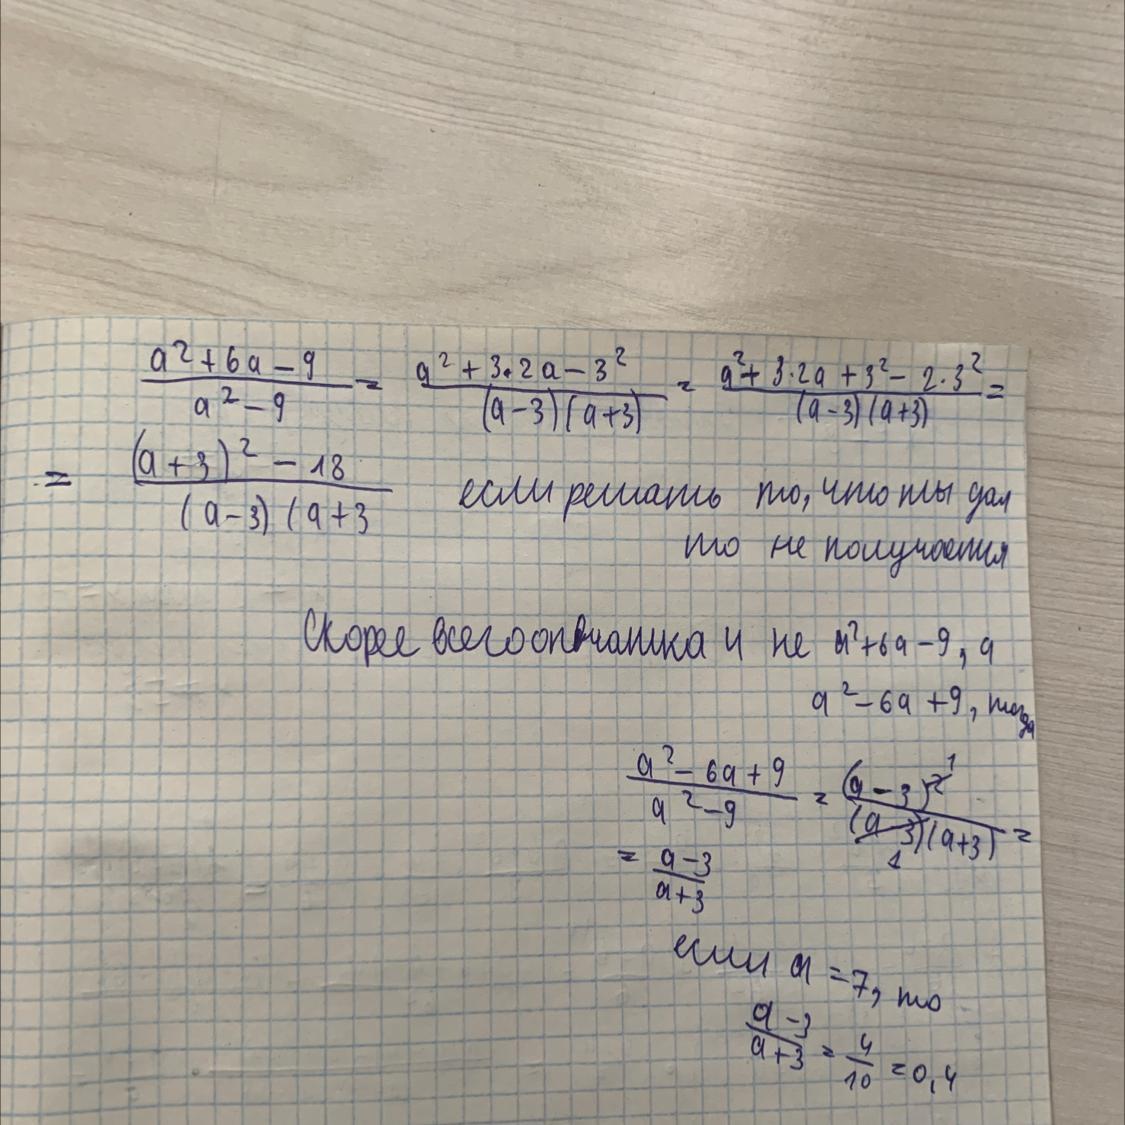 (a² + 6a − 9)/(a² − 9) = (a² + 3·2a − 3²)/((a−3)(a+3)) = (a² + 3·2a + 3² − 2·3²)/((a−3)(a+3)) =
= ((a+3)² − 18)/((a−3)(a+3 если решать то, что ты дал
то не получается
Скорее всего опечатка и не a²+6a−9, а
a²−6a+9, тогда
(a²−6a+9)/(a²−9) = (a−3)²/((a−3)(a+3)) =
= (a−3)/(a+3)
если a =7, то
(a−3)/(a+3) = 4/10 = 0,4